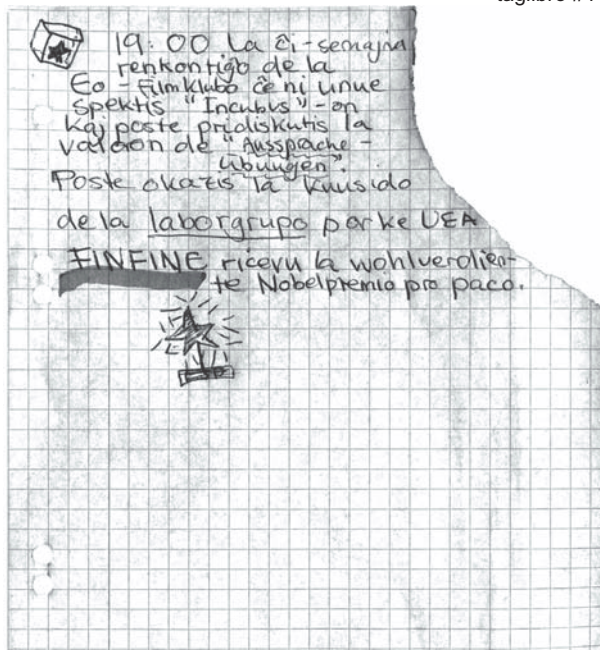 19:00 La ĉi-semajna
renkontiĝo de la
Eo-Filmklubo ĉe ni unue
spektis "Incubus"-on
kaj poste pridiskutis la
valoron de "Aussprache-
übungen".
Poste okazis la kunsido
de la laborgrupo por ke UEA
FINFINE ricevu la wohlverdien-
te Nobelpremio pro paco.